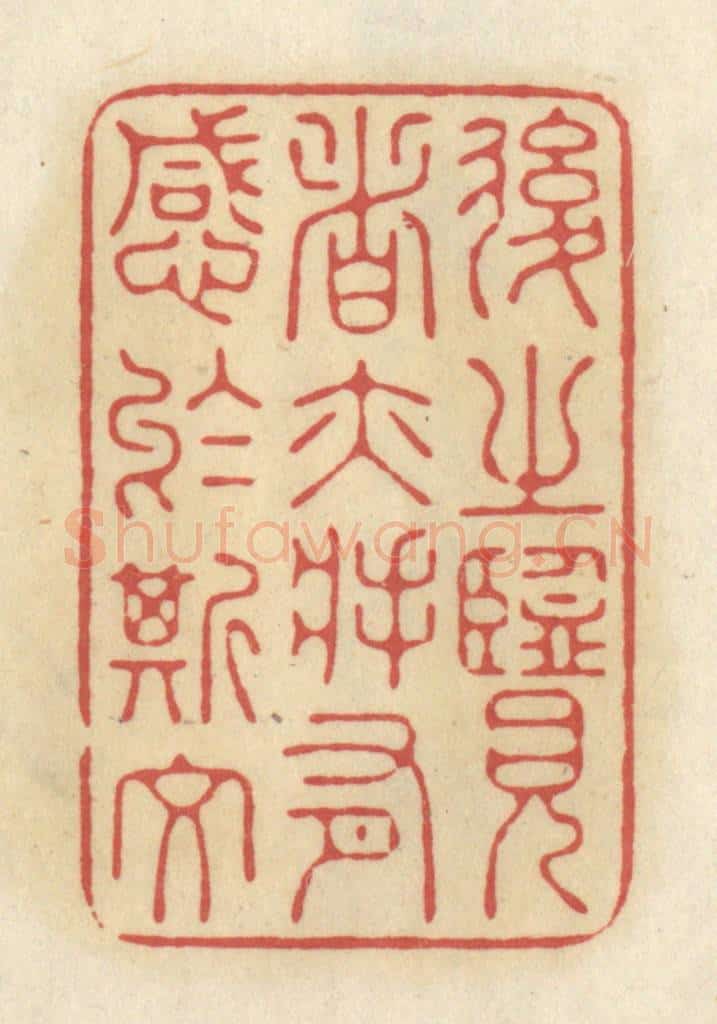 後之覽
者亦將有
感於斯文
Shufawang.CN